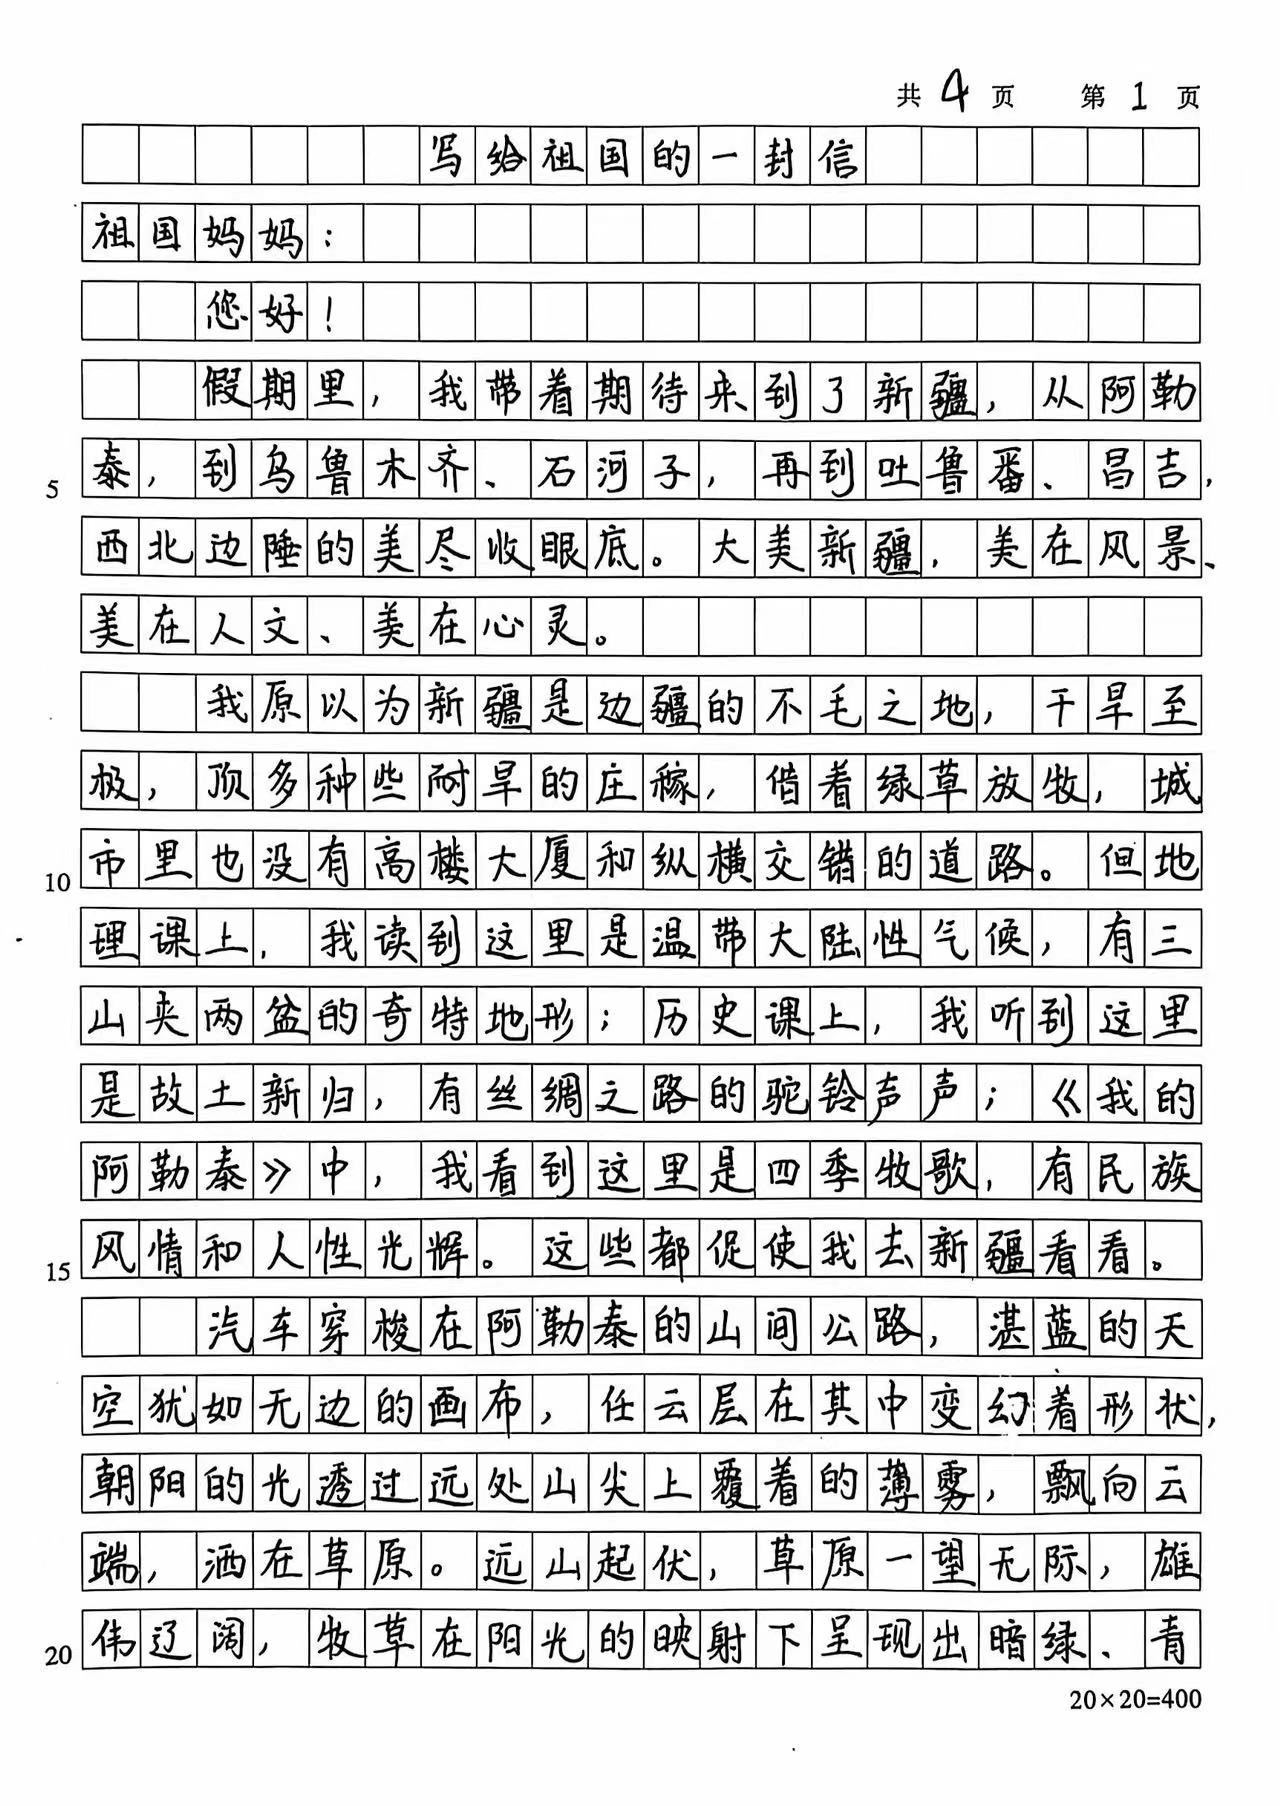 共 4 页 第 1 页
写给祖国的一封信
祖国妈妈：
您好！
假期里，我带着期待来到了新疆，从阿勒
5 泰，到乌鲁木齐、石河子，再到吐鲁番、昌吉，
西北边陲的美尽收眼底。大美新疆，美在风景、
美在人文、美在心灵。
我原以为新疆是边疆的不毛之地，干旱至
极，顶多种些耐旱的庄稼，借着绿草放牧，城
10 市里也没有高楼大厦和纵横交错的道路。但地
理课上，我读到这里是温带大陆性气候，有三
山夹两盆的奇特地形；历史课上，我听到这里
是故土新归，有丝绸之路的驼铃声声；《我的
阿勒泰》中，我看到这里是四季牧歌，有民族
15 风情和人性光辉。这些都促使我去新疆看看。
汽车穿梭在阿勒泰的山间公路，湛蓝的天
空犹如无边的画布，任云层在其中变幻着形状，
朝阳的光透过远处山尖上覆着的薄雾，飘向云
端，洒在草原。远山起伏，草原一望无际，雄
20 伟辽阔，牧草在阳光的映射下呈现出暗绿、青
20×20=400